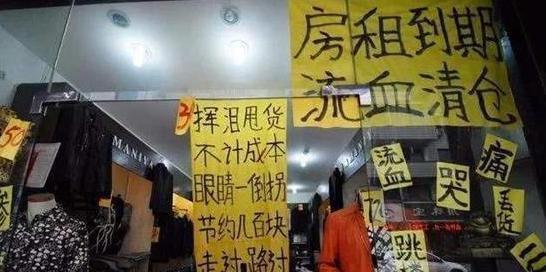 房租到期
流血清仓
挥泪甩货
不计成本
眼睛一倒拐
节约几百块
走过路过
50
流血
哭
痛
跳